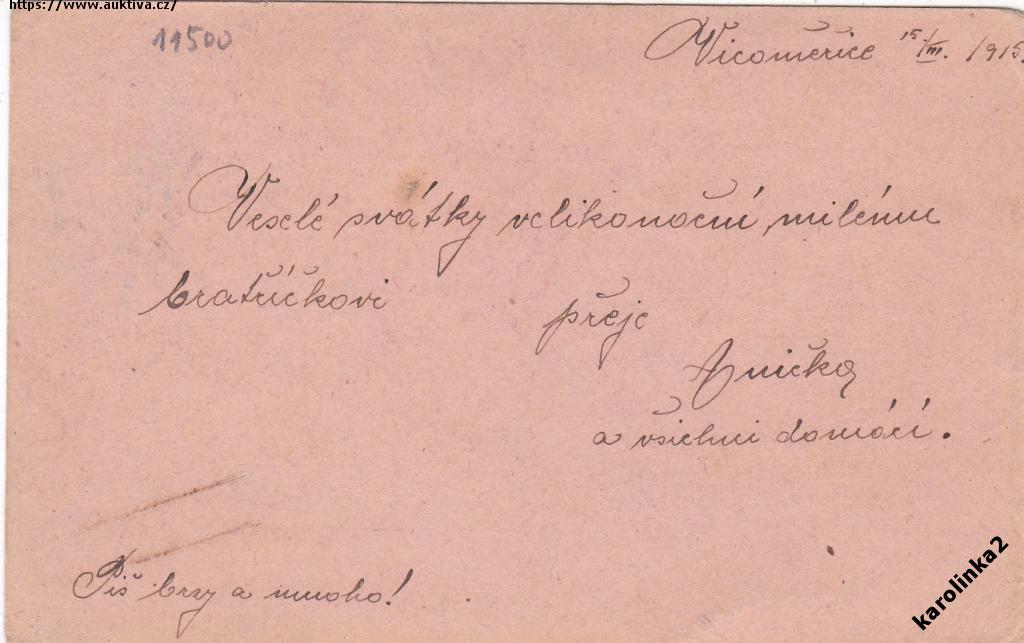 https://www.auktiva.cz/
11500
Vicoměřice 15/III. 1915.
Veselé svátky velikonoční milému
bratříčkovi přeje
Anička
a všichni domácí.
Piš brzy a mnoho!
karolinka2